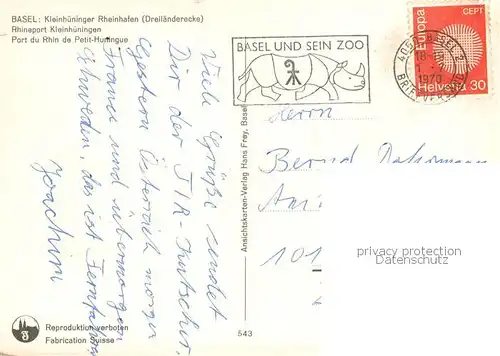 BASEL: Kleinhüninger Rheinhafen (Dreiländerecke)
Rhineport Kleinhüningen
Port du Rhin de Petit-Huningue
BASEL UND SEIN ZOO
Europa
CEPT
Helvetia 30
1970
BRIEFVERSAND
Viele Grüße sendet
Dir der TIR-Kutscher.
Gestern Österreich morgen
France und übermorgen
Schweden, das ist Fernfahrer
Joachim
Ansichtskarten-Verlag Hans Frey, Basel
Herrn
Bernd
101
privacy protection
Datenschutz
Reproduktion verboten
Fabrication Suisse
543